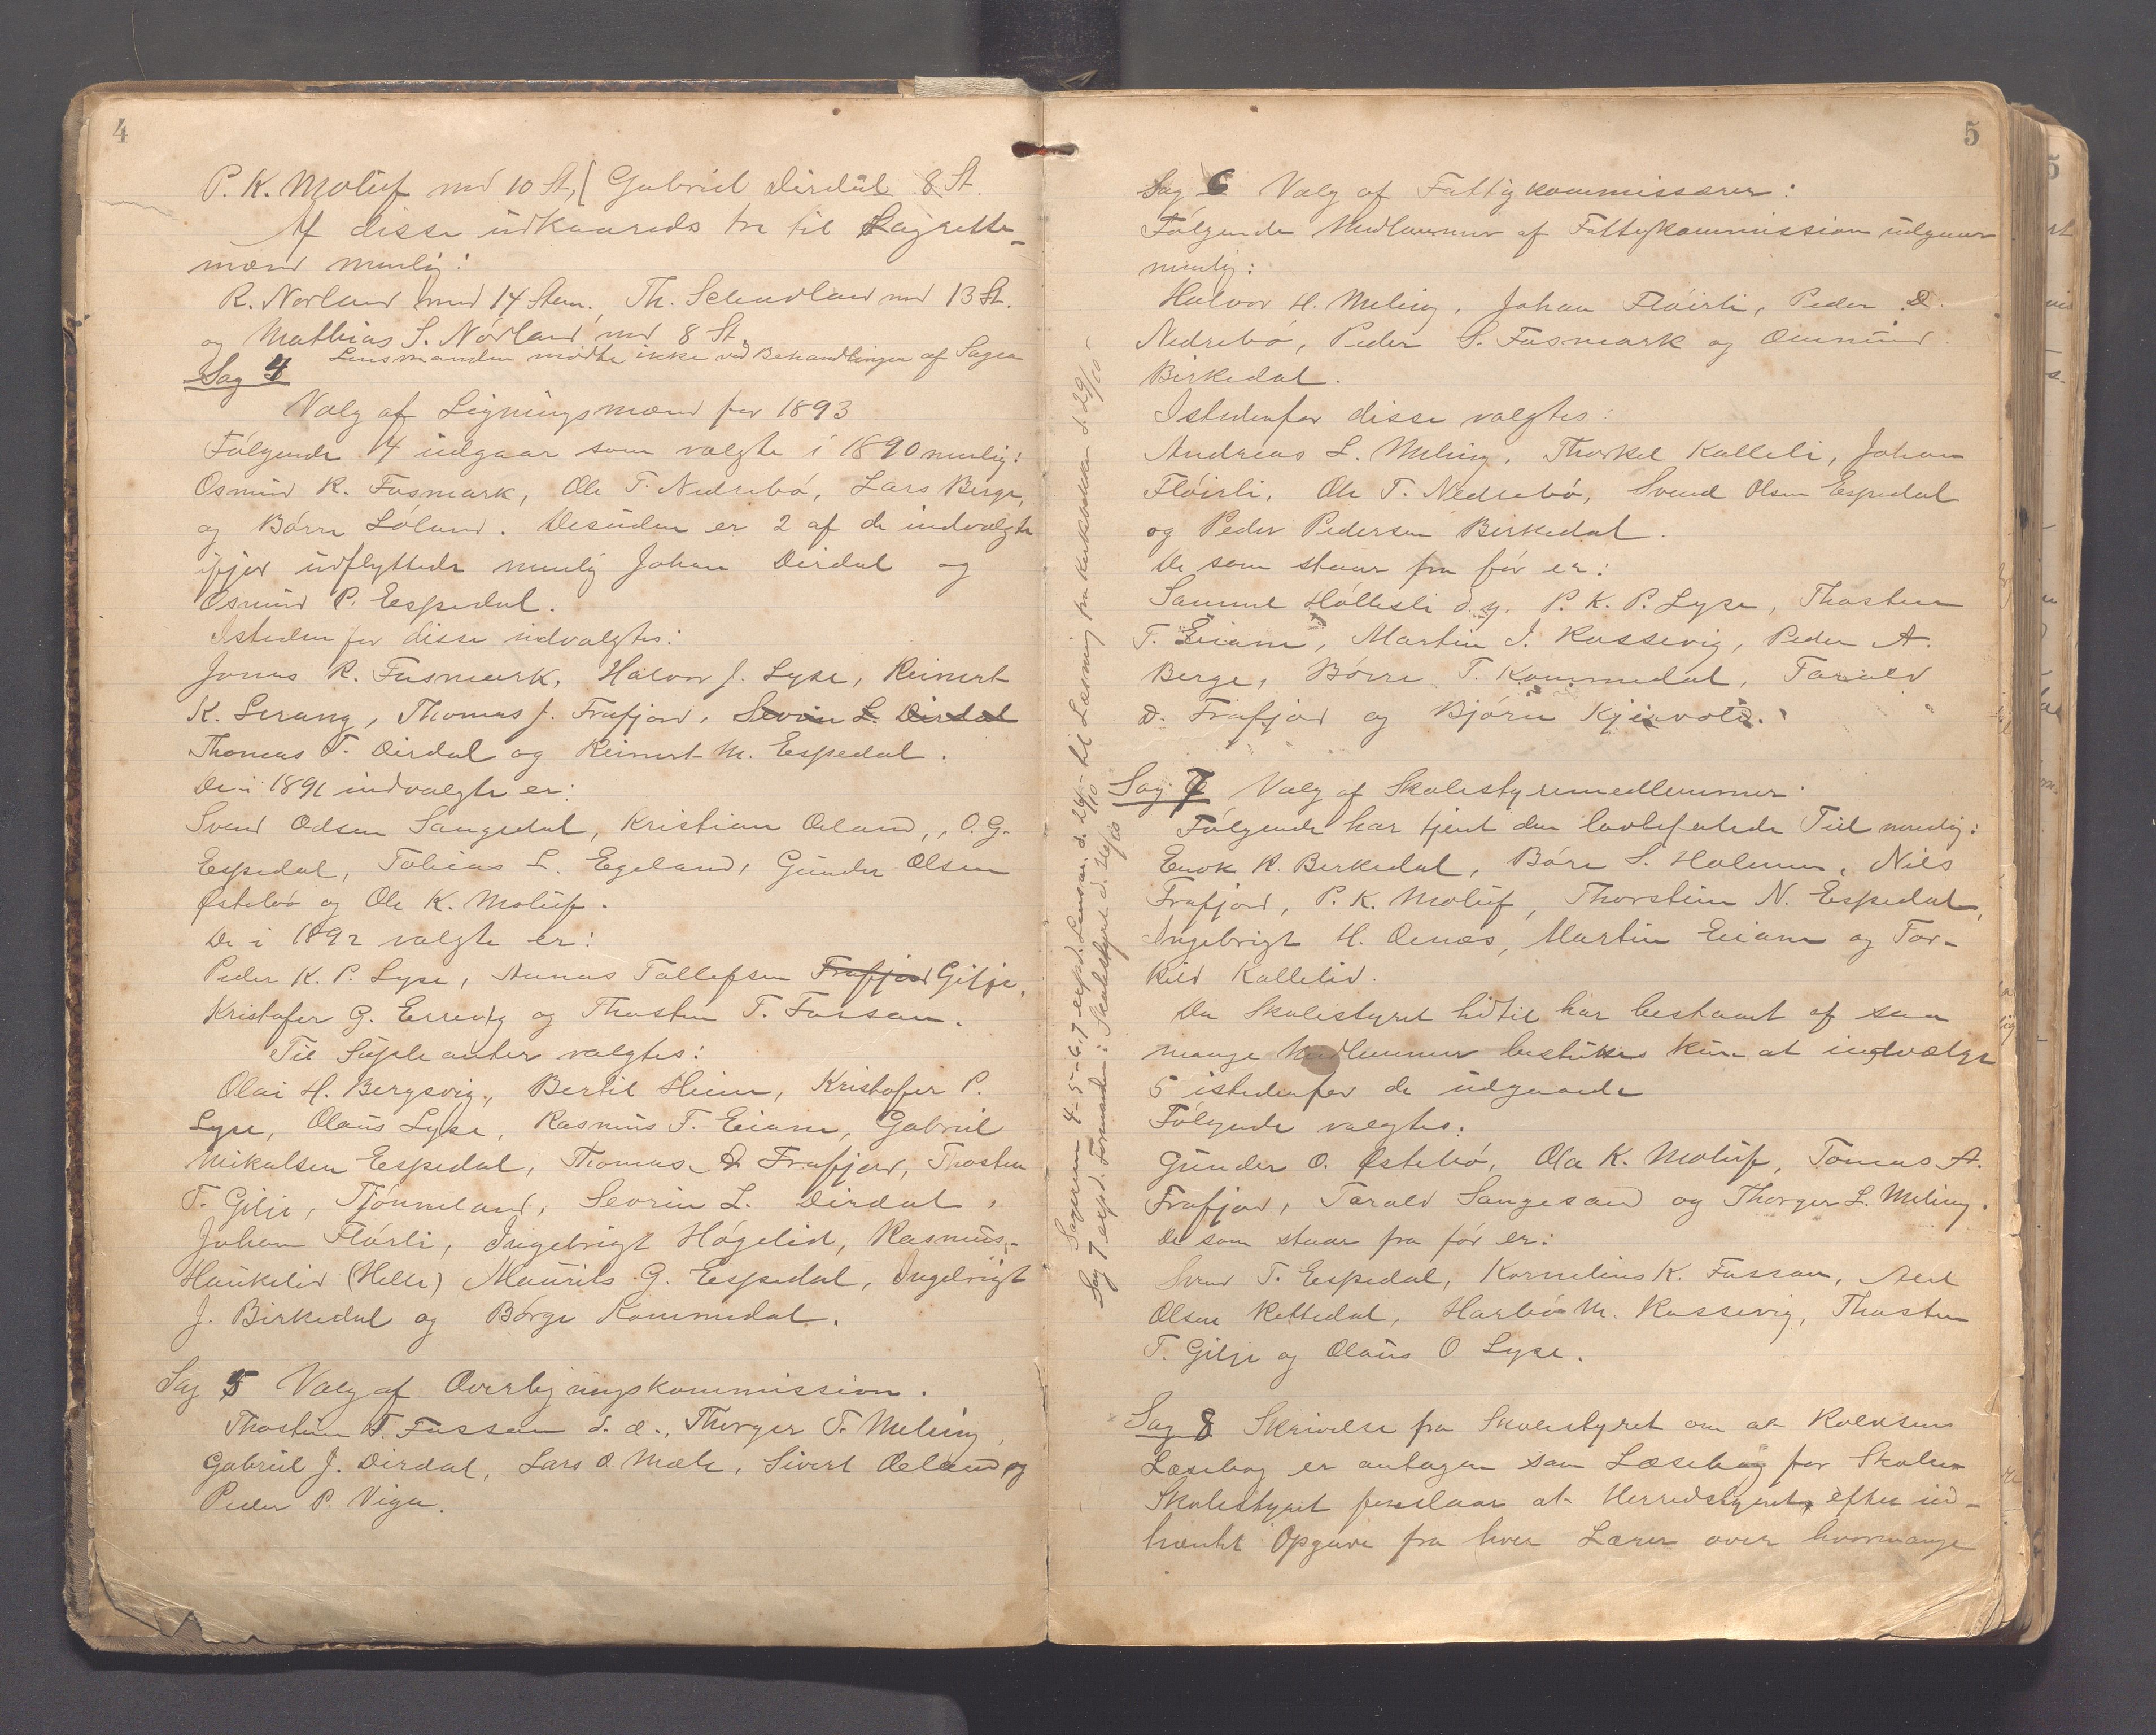 4
P. K. Moluf med 10 St, ( Gabriel Dirdal 8 St.
Af disse udkaaredes tre til Lagrette-
mænd nemlig:
R. Norland med 14 Stem. Th. med 13 St.
og Mathias S. Nórland med 8 St.
Lensmanden mødte ikke ved Behandlingen af Sagen
Sag 4
Valg af Ligningsmænd for 1893
Følgende 4 udgaar som valgte i 1890 nemlig:
Osmund K. Fosmark, Ole T. Nedrebó, Lars Berge,
og Bórre Lóland. Desuden er 2 af de indvalgte
ifjor udflyttede nemlig Johan Dirdal og
Osmund P. Espedal.
Istedenfor disse indvalgtes:
Jonas R. Fosmark, Halvor J. Lyse, Reinert
K. Lerang, Thomas J. Frafjord, Sevrin L. Dirdal
Thomas T. Dirdal og Reinert M. Espedal.
De i 1891 indvalgte er:
Svend Odsen Sangedal, Kristian Oeland, O. G.
Espedal, Tobias L. Egeland, Gunder Olsen
Østebó og Ole K. Moluf.
De i 1892 valgte er:
Peder K. P. Lyse, Aanas Tollefsen Frafjord Gilje,
Kristofer G. Errevig og Thosten T. Fossan.
Til Supleanter valgtes:
Olai H. Bergsvig, Bertil Heim, Kristofer P.
Lyse, Olaus Lyse, Rasmus T. Eiane, Gabriel
Mikalsen Espedal, Thomas D Frafjord, Thosten
T. Gilje, Tjónneland, Sevrin L. Dirdal,
Johan Flórli, Ingebrigt Høgelid, Rasmus
Haukelid (Helle) Maurits G. Espedal, Ingebrigt
J. Birkedal og Bórge Kommedal.
Sag 5 Valg af Overligningskommission.
Thosten T. Fossan d. æ., Thorger T. Meling,
Gabriel J. Dirdal, Lars O Mæle, Sivert Oeland og
Peder P. Viga.
Sagerne 4-5-6, 7 exped. Lensm. d. 24/10 - til Læsning fra Kirkebakken d. 29/10 -
Sag 7 exped. Formanden i Skolestyret d. 26/10
5
Sag 6 Valg af Fattigkommissærer:
Følgende Medlemmer af Fattigkommission udgaar
nemlig:
Halvor H. Meling, Johan Flóirli, Peder D.
Nedrebó, Peder S. Fosmark og Ommund
Birkedal.
Istedenfor disse valgtes:
Andreas L. Meling, Thorkel Kalleli, Johan
Flóirli, Ole T. Nedrebó, Svend Olsen Espedal
og Peder Pedersen Birkedal.
De som staar fra før er:
Samuel Hóllesli d. y. P. K. P. Lyse, Thosten
T. Eiane, Martin I. Kossevig, Peder A.
Berge, Bórre T. Kommedal, Tarald
D. Frafjord og Bjórn Kjeivold.
Sag 7 Valg af Skolestyremedlemmer.
Følgende har tjent den lovbefalede Tid nemlig:
Enok R. Birkedal, Bóre S. Holmen, Nils
Frafjord, P. K. Moluf, Thorstein N. Espedal,
Ingebrigt H. Oenæs, Martin Eiane og Tor-
kild Kallelid.
Da Skolestyret hidtil har bestaaet af saa
mange Medlemmer besluttes kun at indvælge
5 istedenfor de udgaaede
Følgende valgtes:
Gunder O. Østebó, Ole K. Moluf, Tomas A.
Frafjord, Tarald Sangesand og Thorger L. Meling.
De som staar fra før er:
Svend T. Espedal, Kornelius K. Fossan, Aad
Olsen Rettedal, Harbó M. Kossevig, Thosten
T. Gilje og Olaus O Lyse.
Sag 8 Skrivelse fra Skolestyret om at Rolvsens
Læsebog er antagen som Læsebog for Skolen
Skolestyret foreslaar at Herredstyret, efter ind-
hæntet Opgave fra hver Lærer over hvormange